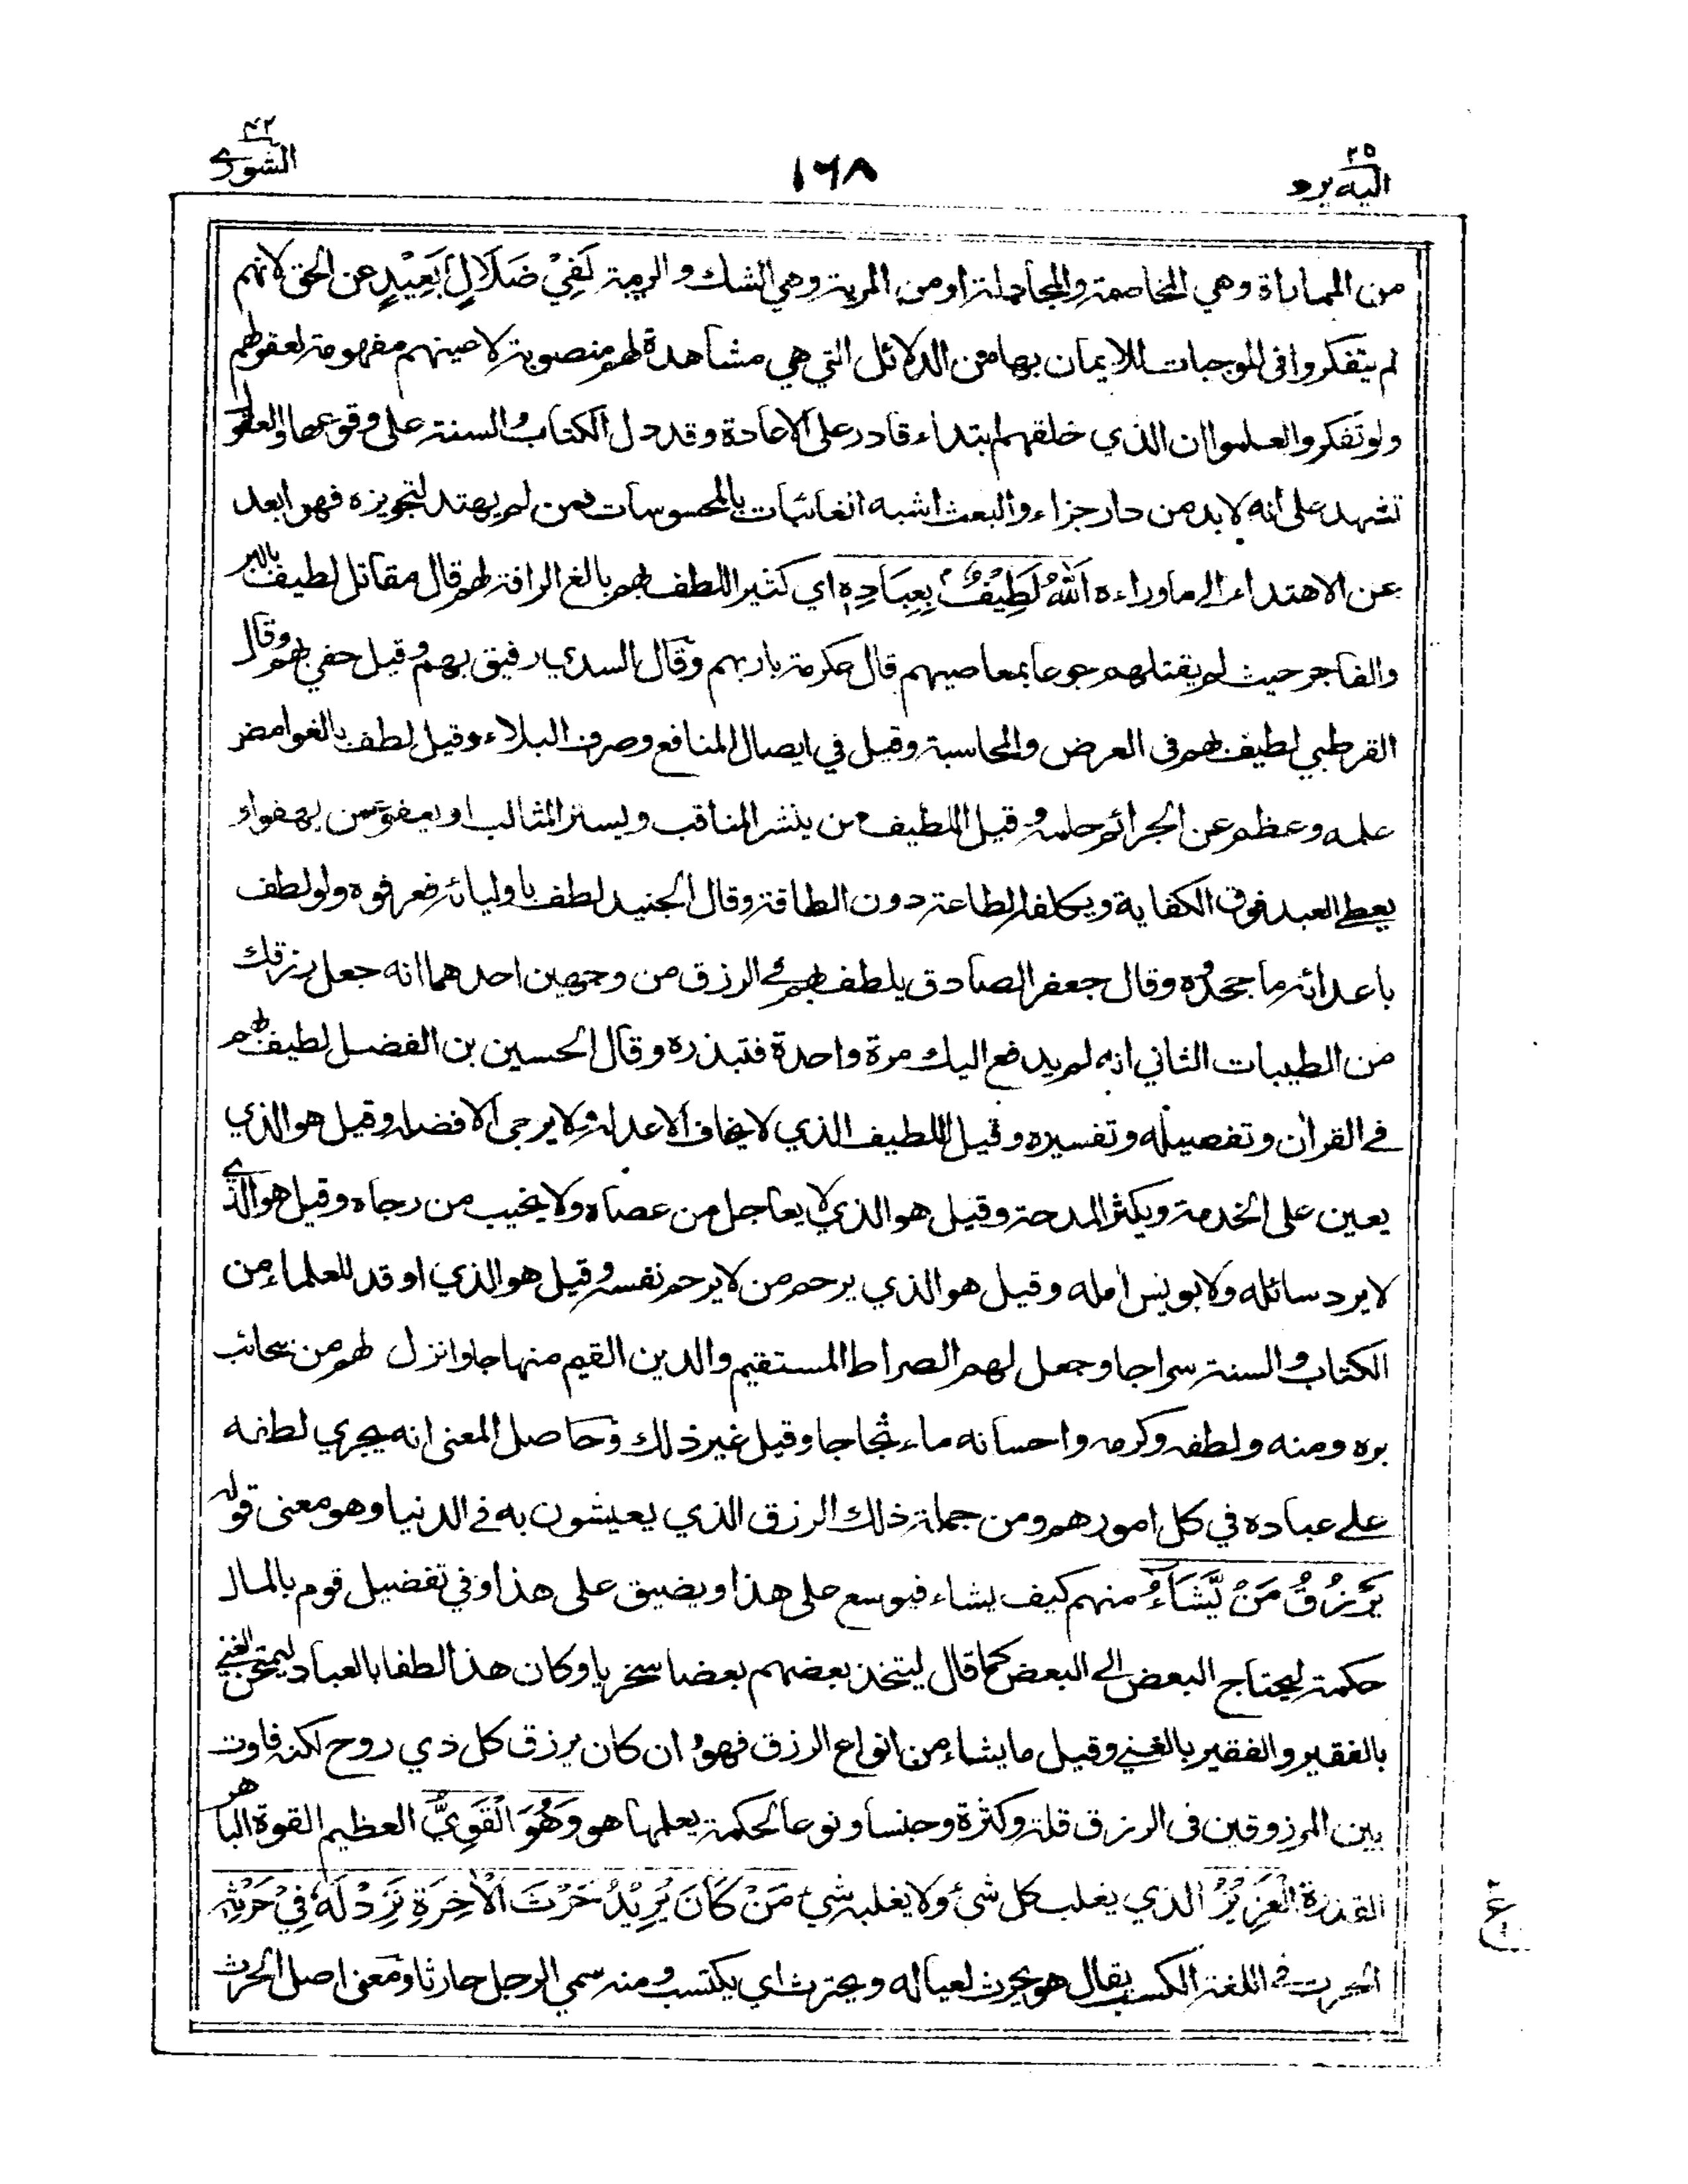 ٢٥
اليه يرد
١٦٨
٤٢
الشورى
من المماراة وهي المخاصمة والمجادلة او من المرية وهي الشك والريبة لَفِيْ ضَلَالٍ بَعِيْدٍ عن الحق لانهم
لم يتفكروا في الموجبات للايمان بها من الدلائل التي هي مشاهدة لهم منصوبة لاعينهم مفهومة لعقولهم
ولو تفكروا لعلموا ان الذي خلقهم ابتداء قادر على الاعادة وقد دل الكتاب والسنة على وقوعها والعقول
تشهد على انه لابد من دار جزاء والبعث اشبه الغائبات بالمحسوسات فمن لم يهتد لتجويزه فهو ابعد
عن الاهتداء الى ما وراءه اَللّٰهُ لَطِيْفٌۢ بِعِبَادِهٖ اي كثير اللطف بهم بالغ الرافة لهم قال مقاتل لطيف بالبر
والفاجر حيث لم يقتلهم جوعا بمعاصيهم قال عكرمة بار بهم وقال السدي رفيق بهم وقيل حفي بهم وقال
القرطبي لطيف بهم في العرض والمحاسبة وقيل في ايصال المنافع وصرف البلاء وقيل لطف بالغوامض
علمه وعظم عن الجرائم حلمه وقيل اللطيف من ينشر المناقب ويستر المثالب او يعفو عمن يهفو او
يعطي العبد فوق الكفاية ويكلفه الطاعة دون الطاقة وقال الجنيد لطف باوليائه فعرفوه ولو لطف
باعدائه ما جحدوه وقال جعفر الصادق يلطف بهم في الرزق من وجهين احدهما انه جعل رزقك
من الطيبات الثاني انه لم يدفع اليك مرة واحدة فتبذره وقال الحسين بن الفضل لطيف بهم
في القرأن وتفصيله وتفسيره وقيل اللطيف الذي لا يخاف الا عدله ولا يرجى الا فضله وقيل هو الذي
يعين على الخدمة ويكثر المدحة وقيل هو الذي لا يعاجل من عصاه ولا يخيب من رجاه وقيل هو الذي
لا يرد سائله ولا يويس أمله وقيل هو الذي يرحم من لا يرحم نفسه وقيل هو الذي اوقد للعلماء من
الكتاب والسنة سراجا وجعل لهم الصراط المستقيم والدين القيم منهاجا وانزل لهم من سحائب
بره ومنه ولطفه وكرمه واحسانه ماء ثجاجا وقيل غير ذلك وحاصل المعنى انه يجري لطفه
على عباده في كل امورهم ومن جملة ذلك الرزق الذي يعيشون به في الدنيا وهو معنى قوله
يَرْزُقُ مَنْ يَّشَآءُ منهم كيف يشاء فيوسع على هذا ويضيق على هذا وفي تفضيل قوم بالمال
حكمة ليحتاج البعض الى البعض كما قال ليتخذ بعضهم بعضا سخريا وكان هذا لطفا بالعباد ليمتحن الغني
بالفقير والفقير بالغني وقيل ما يشاء من انواع الرزق فهو ان كان يرزق كل ذي روح لكنه فاوت
بين المرزوقين في الرزق قلة وكثرة وجنسا ونوعا لحكمة يعلمها هو وَهُوَ الْقَوِيُّ العظيم القوة الباهر
القدرة الْعَزِيْزُ الذي يغلب كل شئ ولا يغلبه شئ مَنْ كَانَ يُرِيْدُ حَرْثَ الْاٰخِرَةِ نَزِدْ لَهٗ فِيْ حَرْثِهٖ
الحرث في اللغة الكسب يقال هو يحرث لعياله ويحترث اي يكتسب ومنه سمي الرجل حارثا ومعنى اصل الحرث
ع